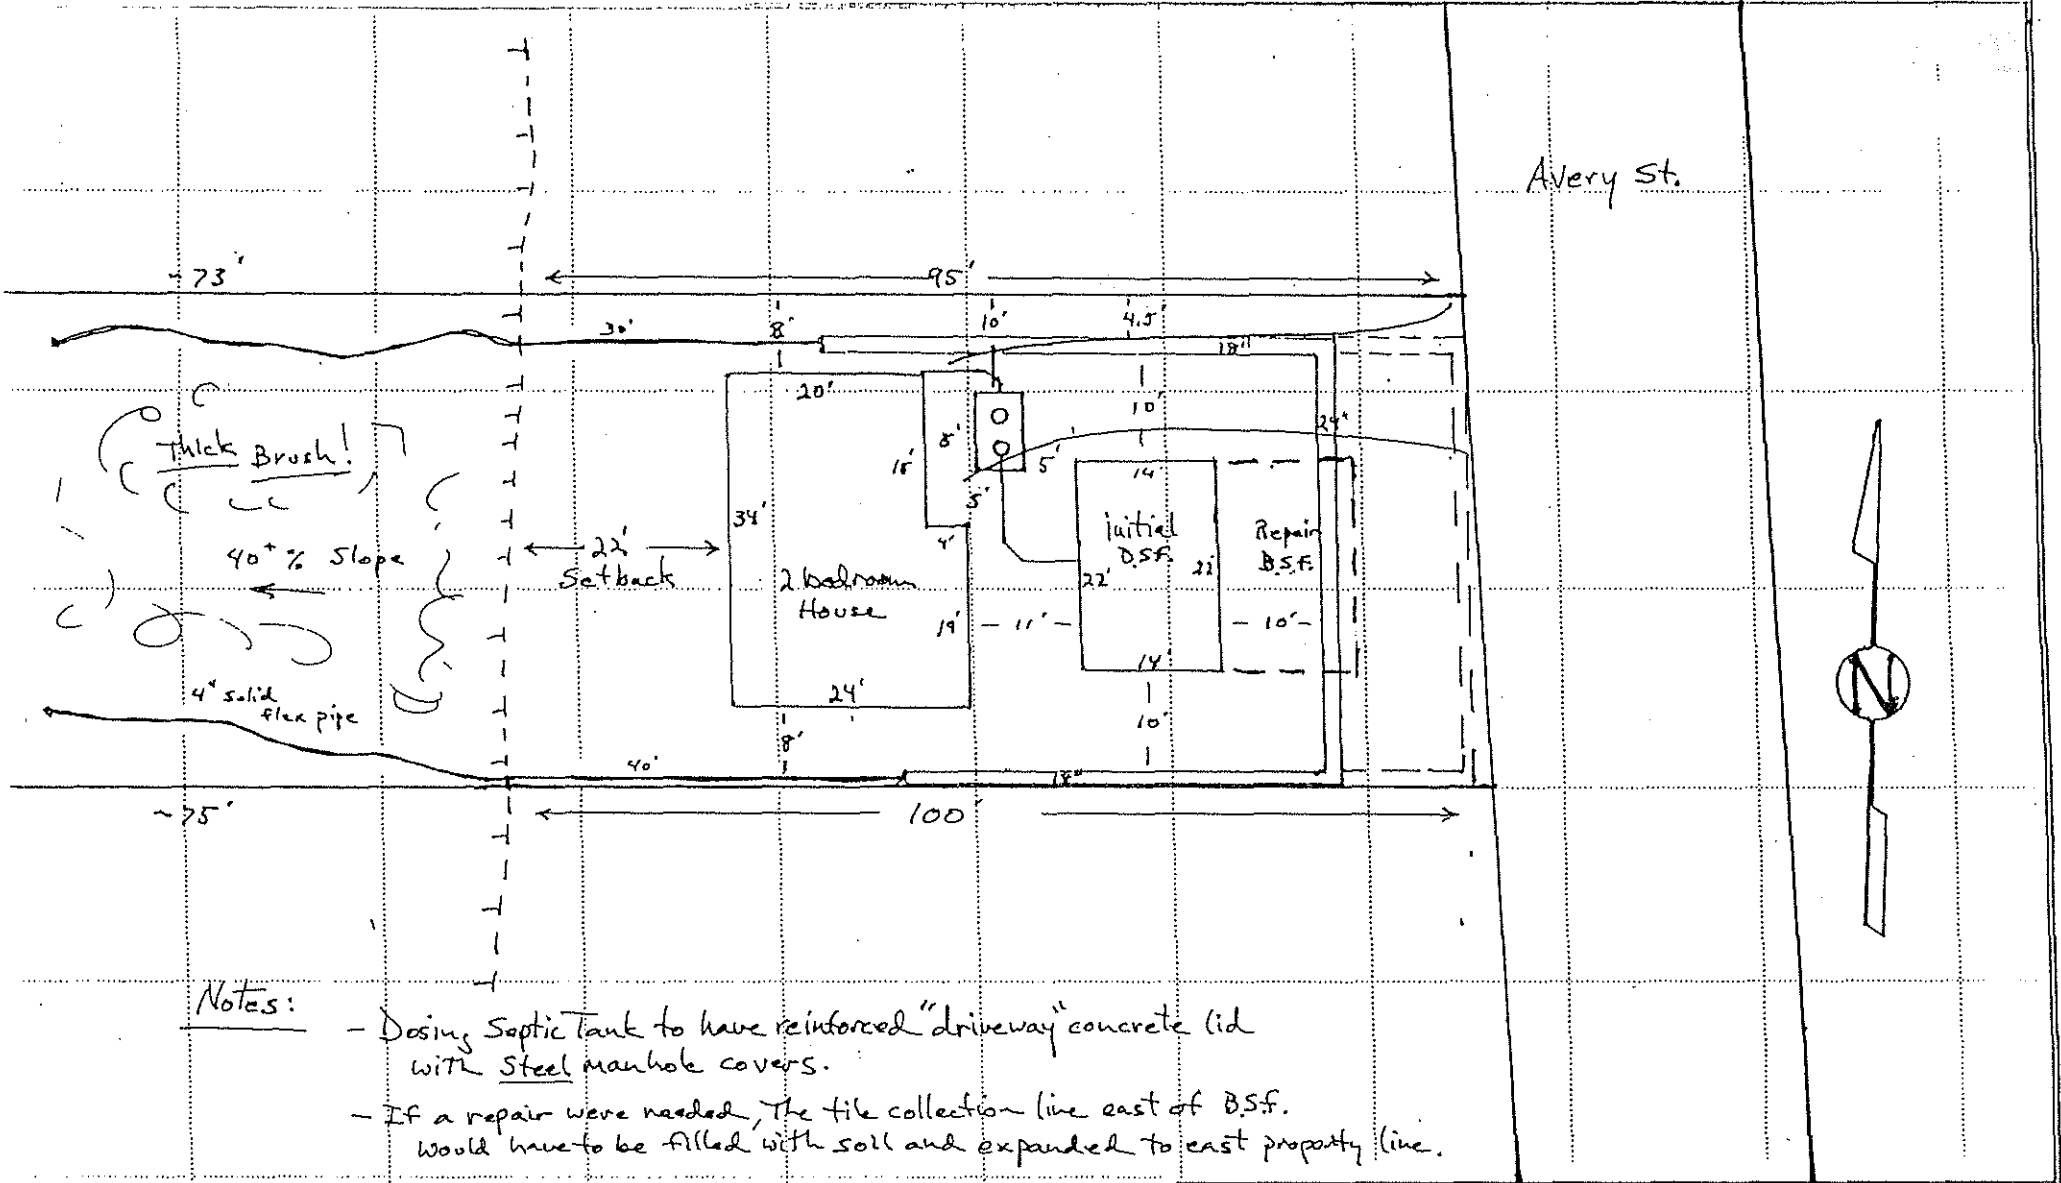 Avery St.
~73'
95'
30'
8'
10'
4.5'
18"
20'
10'
24"
Thick Brush!
8'
15'
5'
14'
5'
34'
initial
B.S.F.
Repair
B.S.F.
4'
40+ % Slope
22'
Setback
22'
22'
2 bedroom
House
19'
11'
10'
14'
24'
4" solid
flex pipe
10'
8'
40'
18"
~75'
100'
N
Notes:
- Dosing Septic Tank to have reinforced "driveway" concrete lid
with Steel manhole covers.
- If a repair were needed, The tile collection line east of B.S.F.
would have to be filled with soil and expanded to east property line.